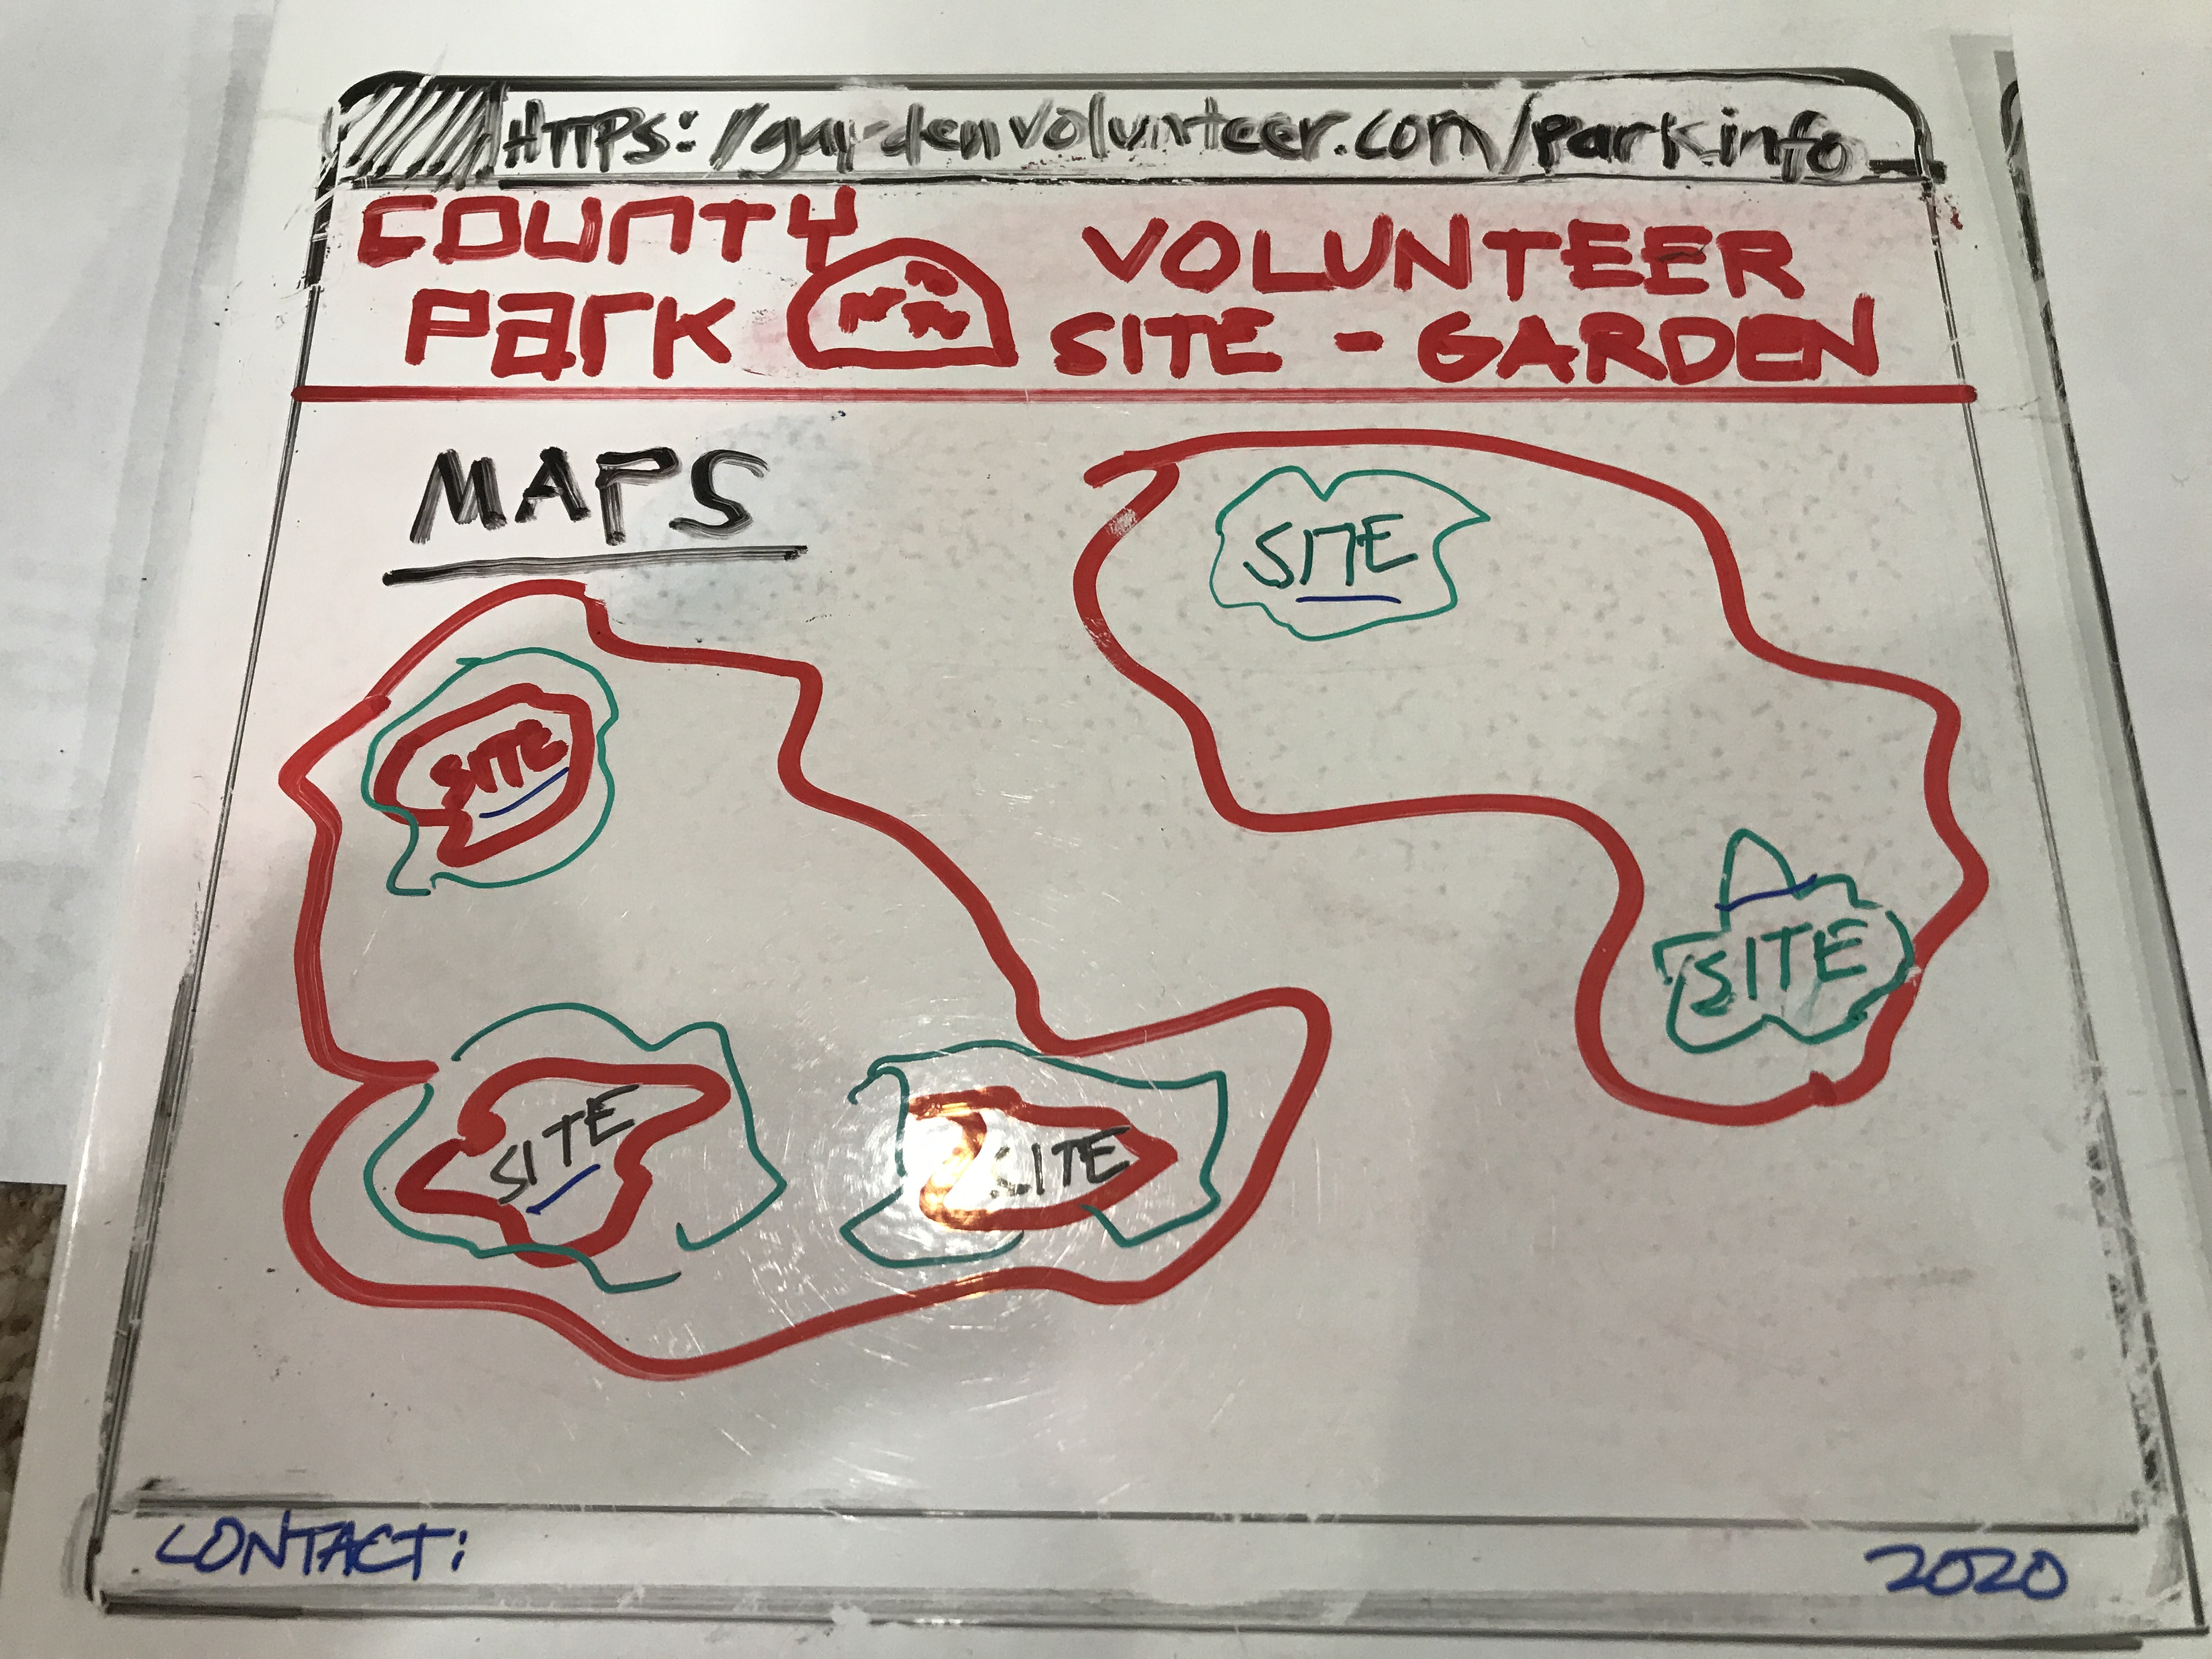 HTTPS://gardenvolunteer.com/parkinfo
COUNTY PARK
VOLUNTEER
SITE - GARDEN
MAPS
SITE
SITE
SITE
SITE
SITE
CONTACT:
2020